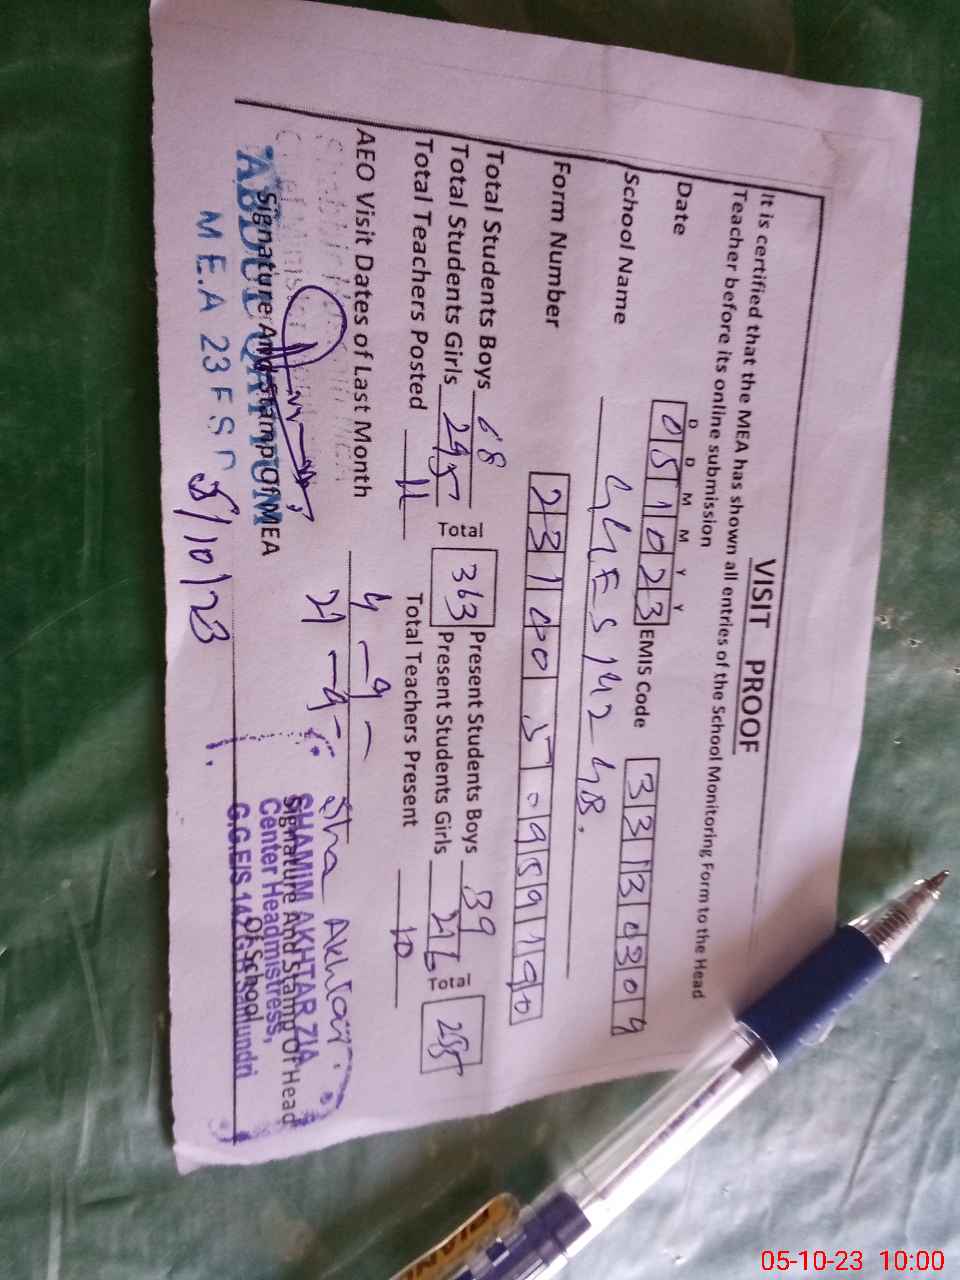 VISIT PROOF
It is certified that the MEA has shown all entries of the School Monitoring Form to the Head
Teacher before its online submission
D D M M Y Y
Date 051023 EMIS Code 33130309
School Name GGES 142 GB.
Form Number
Total Students Boys 68 Total 363 Present Students Boys 39 Total 255
Total Students Girls 295 Present Students Girls 216
Total Teachers Posted 11 Total Teachers Present 10
AEO Visit Dates of Last Month 4-9-
21-9-
Signature And Stamp of MEA
ABDUL QAYYUM
MEA 23 FSD
5/10/23
Akhtar
Signature And Stamp Of Head
Of School
SHAMIM AKHTAR ZIA
Center Headmistress,
G.G.E/S 142 G.B Samundri
PIANO
05-10-23 10:00